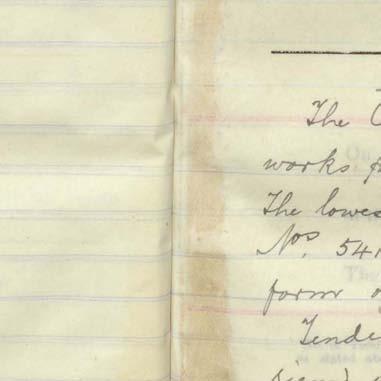 The
works
The lowes
Nos. 541
form o
Tende